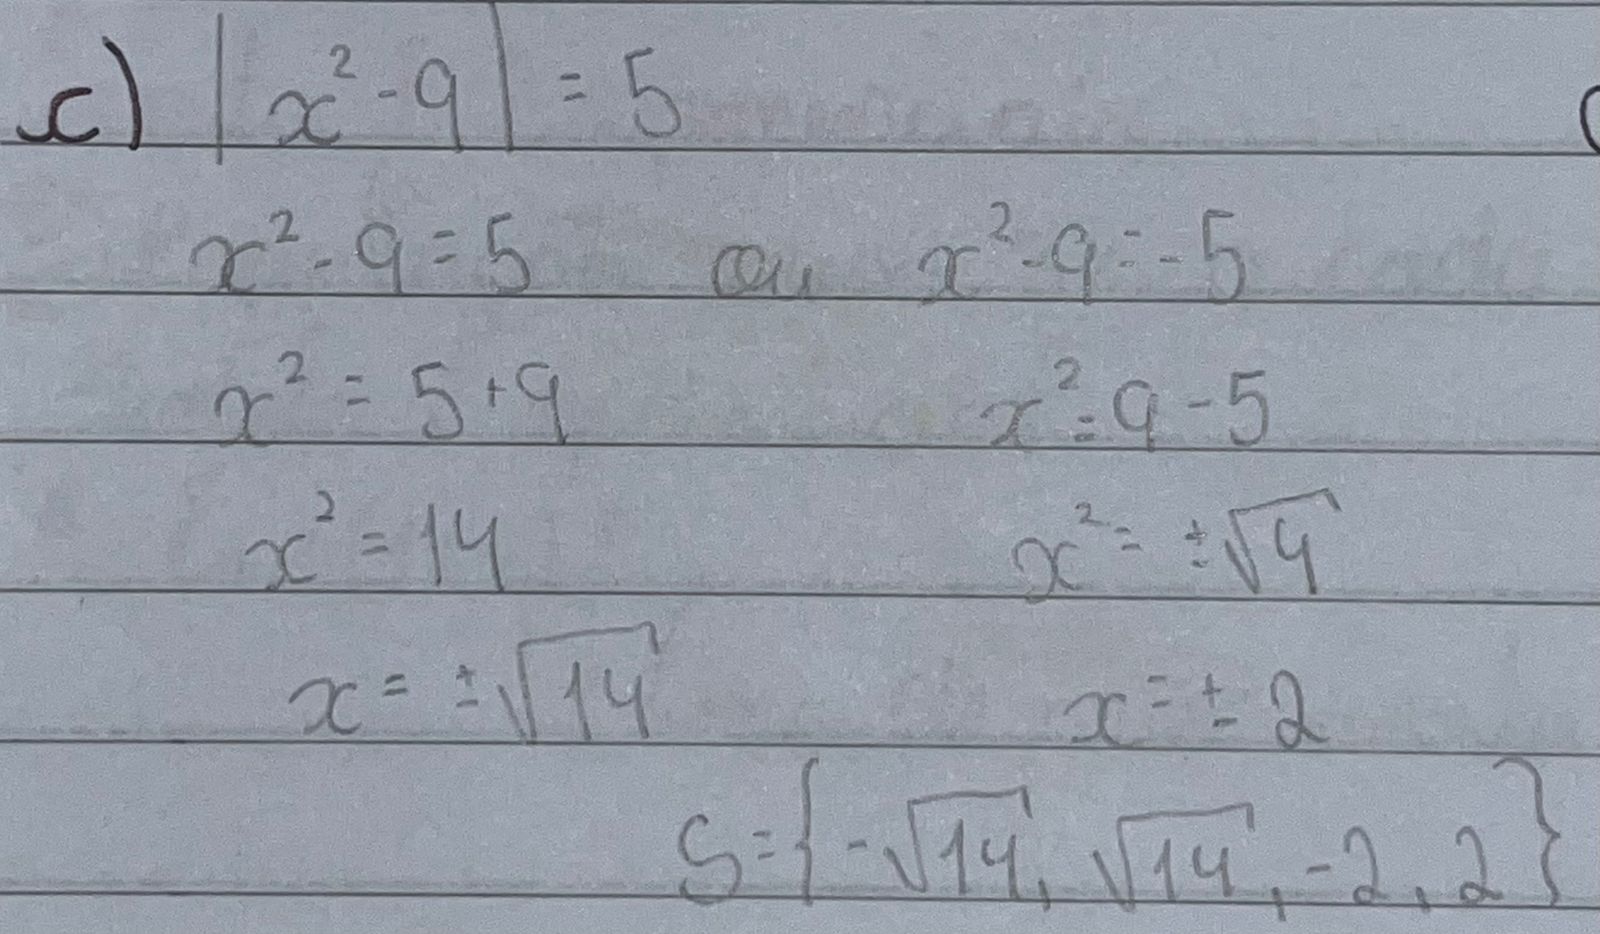 c) |x² - 9| = 5
x² - 9 = 5 ou x² - 9 = -5
x² = 5 + 9 x² = 9 - 5
x² = 14 x² = ±√4
x = ±√14 x = ±2
S = {-√14, √14, -2, 2}